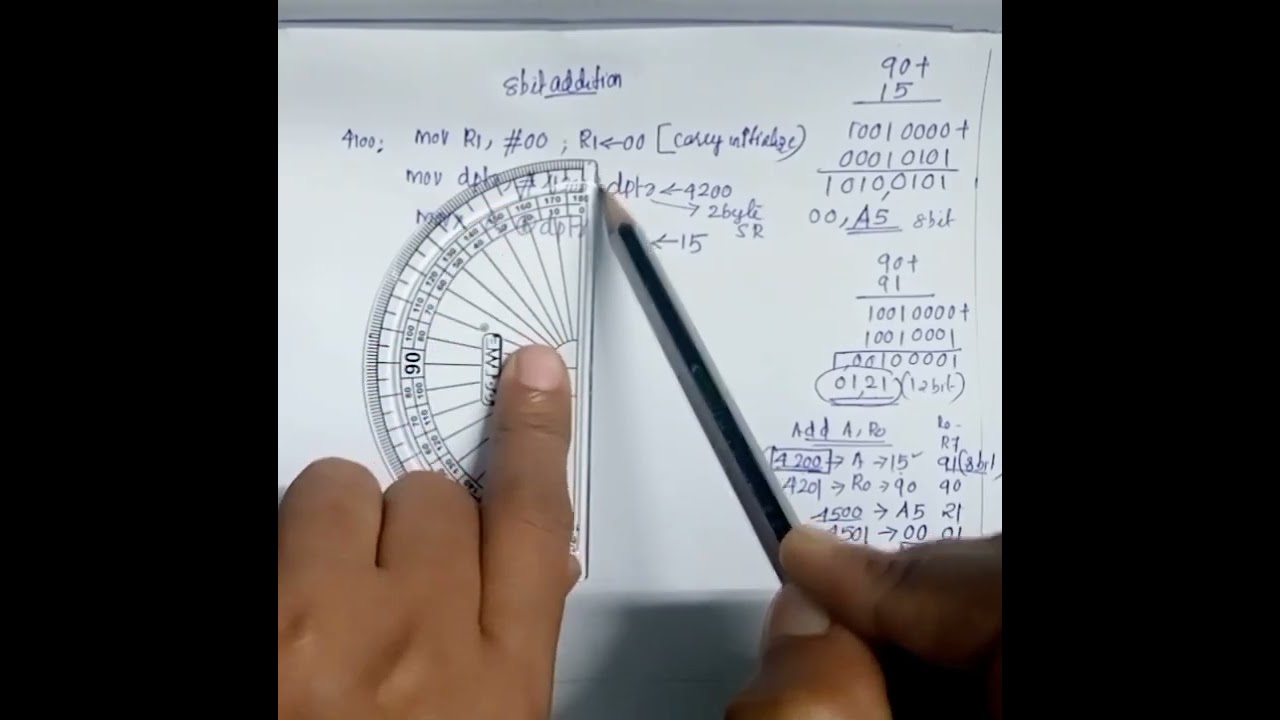 8bit addition
4100; mov R1, #00 ; R1←00 [carry initialize)
mov dptr, dptr←4200
→ 2byte
SR
movx @dptr ←15
90+
15
10010000+
00010101
1010,0101
00, A5 8bit
90+
91
10010000+
10010001
00100001
01,21 (12bit)
Add A, R0
R0-
R7
4200→ A →15 91(8bit
4201→ R0 →90 90
4500 → A5 21
4501 →00 01
90